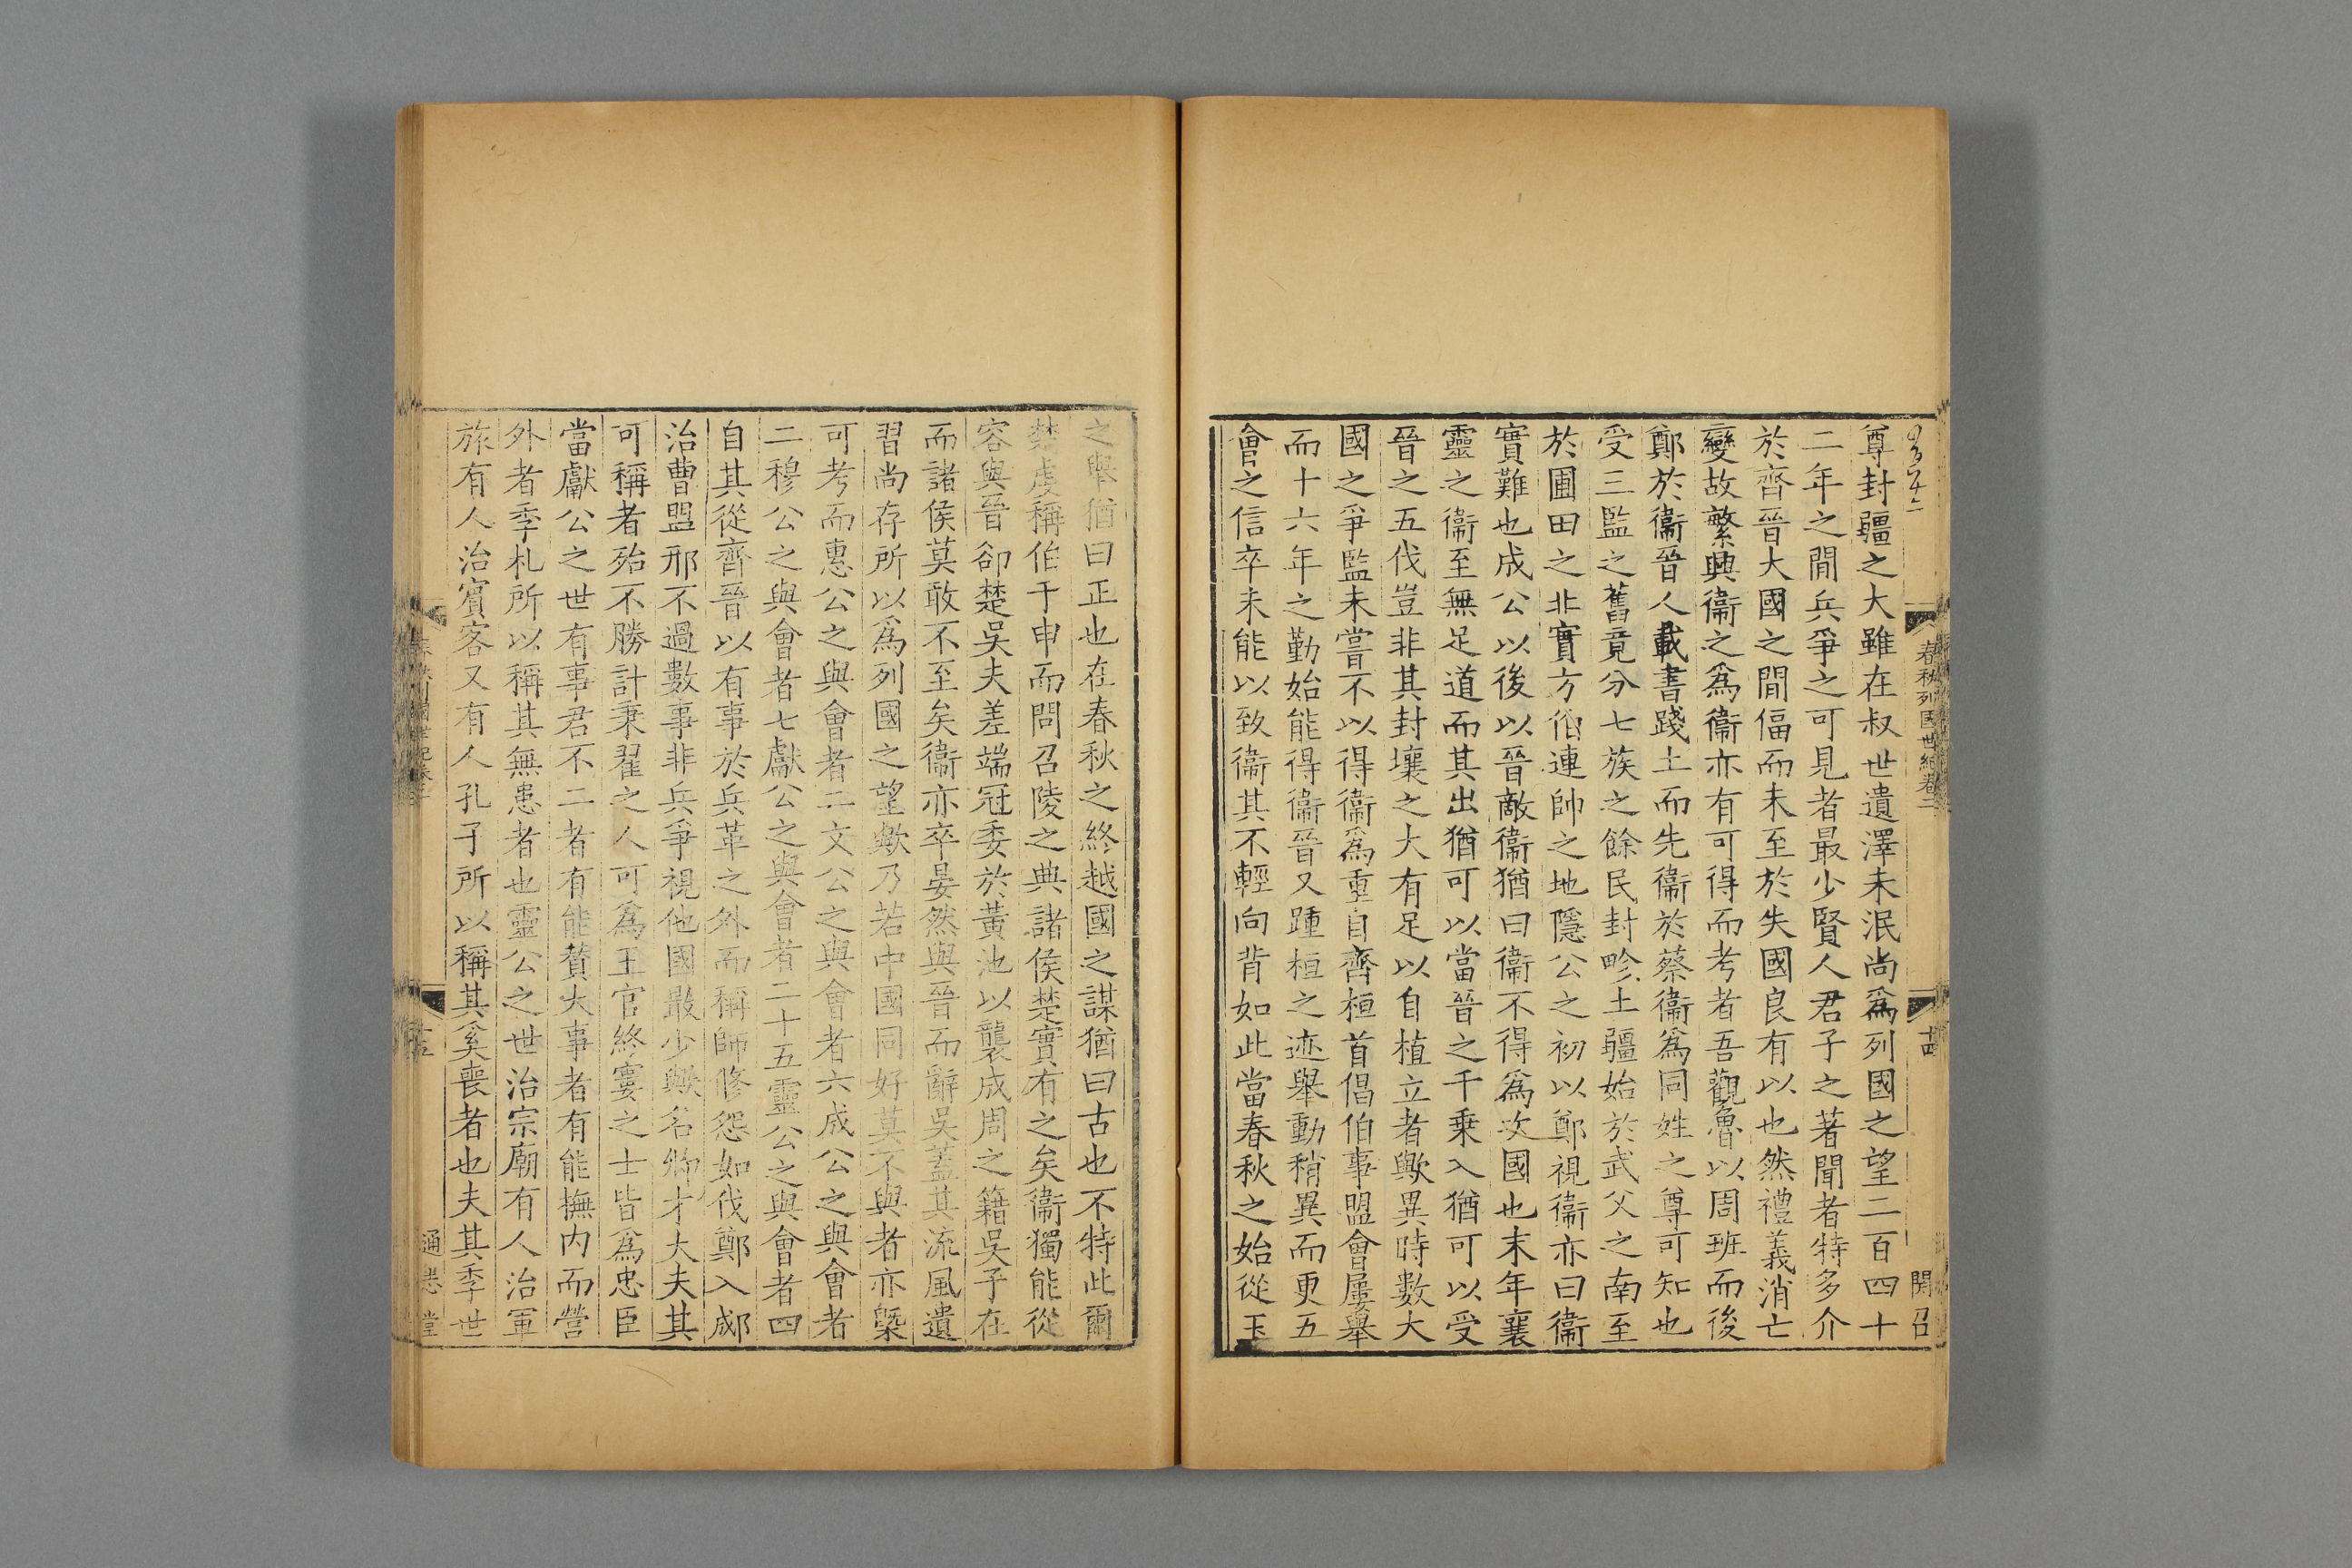 春秋列國世紀卷二
十四
開召
尊封疆之大雖在叔世遺澤未泯尚爲列國之望二百四十
二年之間兵爭之可見者最少賢人君子之著聞者特多介
於齊晉大國之間偪而未至於失國良有以也然禮義消亡
變故繁興衞之爲衞亦有可得而考者吾觀魯以周班而後
鄭於衞晉人載書踐土而先衞於蔡衞爲同姓之尊可知也
受三監之舊竟分七族之餘民封畛土疆始於武父之南至
於圃田之北實方伯連帥之地隱公之初以鄭視衞亦曰衞
實難也成公以後以晉敵衞猶曰衞不得爲次國也末年襄
靈之衞至無足道而其出猶可以當晉之千乗入猶可以受
晉之五伐豈非其封壤之大有足以自植立者歟異時數大
國之爭監未嘗不以得衞爲重自齊桓首倡伯事盟會屢舉
而十六年之勤始能得衞晉又踵桓之迹舉動稍異而更五
會之信卒未能以致衞其不輕向背如此當春秋之始從王
之舉猶曰正也在春秋之終越國之謀猶曰古也不特此爾
楚虔稱伯于申而問召陵之典諸侯楚實有之矣衞獨能從
容與晉卻楚吳夫差端冠委於黃池以襲成周之籍吳子在
而諸侯莫敢不至矣衞亦卒晏然與晉而辭吳蓋其流風遺
習尚存所以爲列國之望歟乃若中國同好莫不與者亦槩
可考而惠公之與會者二文公之與會者六成公之與會者
二穆公之與會者七獻公之與會者二十五靈公之與會者四
自其從齊晉以有事於兵革之外而稱師脩怨如伐鄭入郕
治曹盟邢不過數事非兵爭視他國最少歟名卿才大夫其
可稱者殆不勝計秉翟之人可爲王官終窶之士皆爲忠臣
當獻公之世有事君不二者有能贊大事者有能撫内而營
外者季札所以稱其無患者也靈公之世治宗廟有人治軍
旅有人治賓客又有人孔子所以稱其奚喪者也夫其季世
十五
通志堂